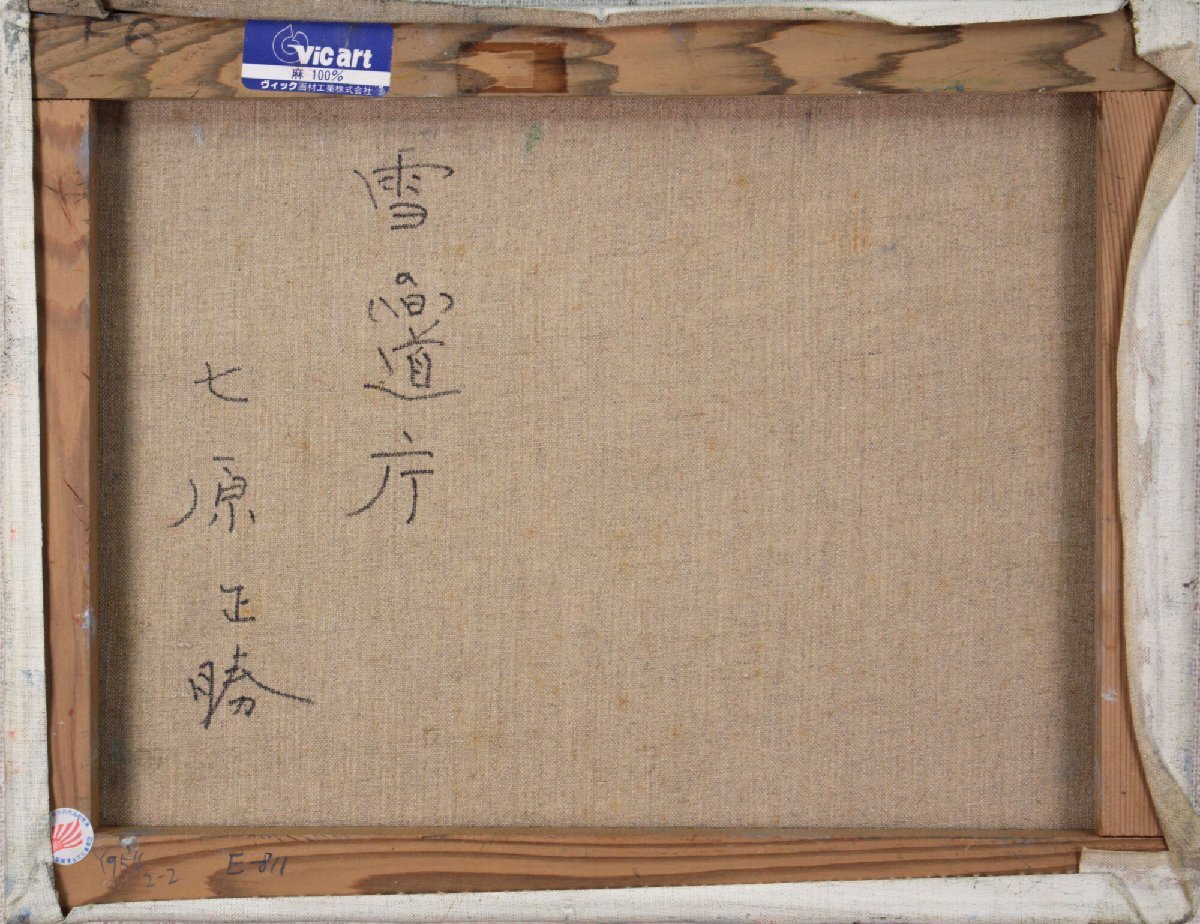 F6
Vicart
麻 100%
ヴィック画材工業株式会社
雪の道庁
七原正勝
2-2
E-811